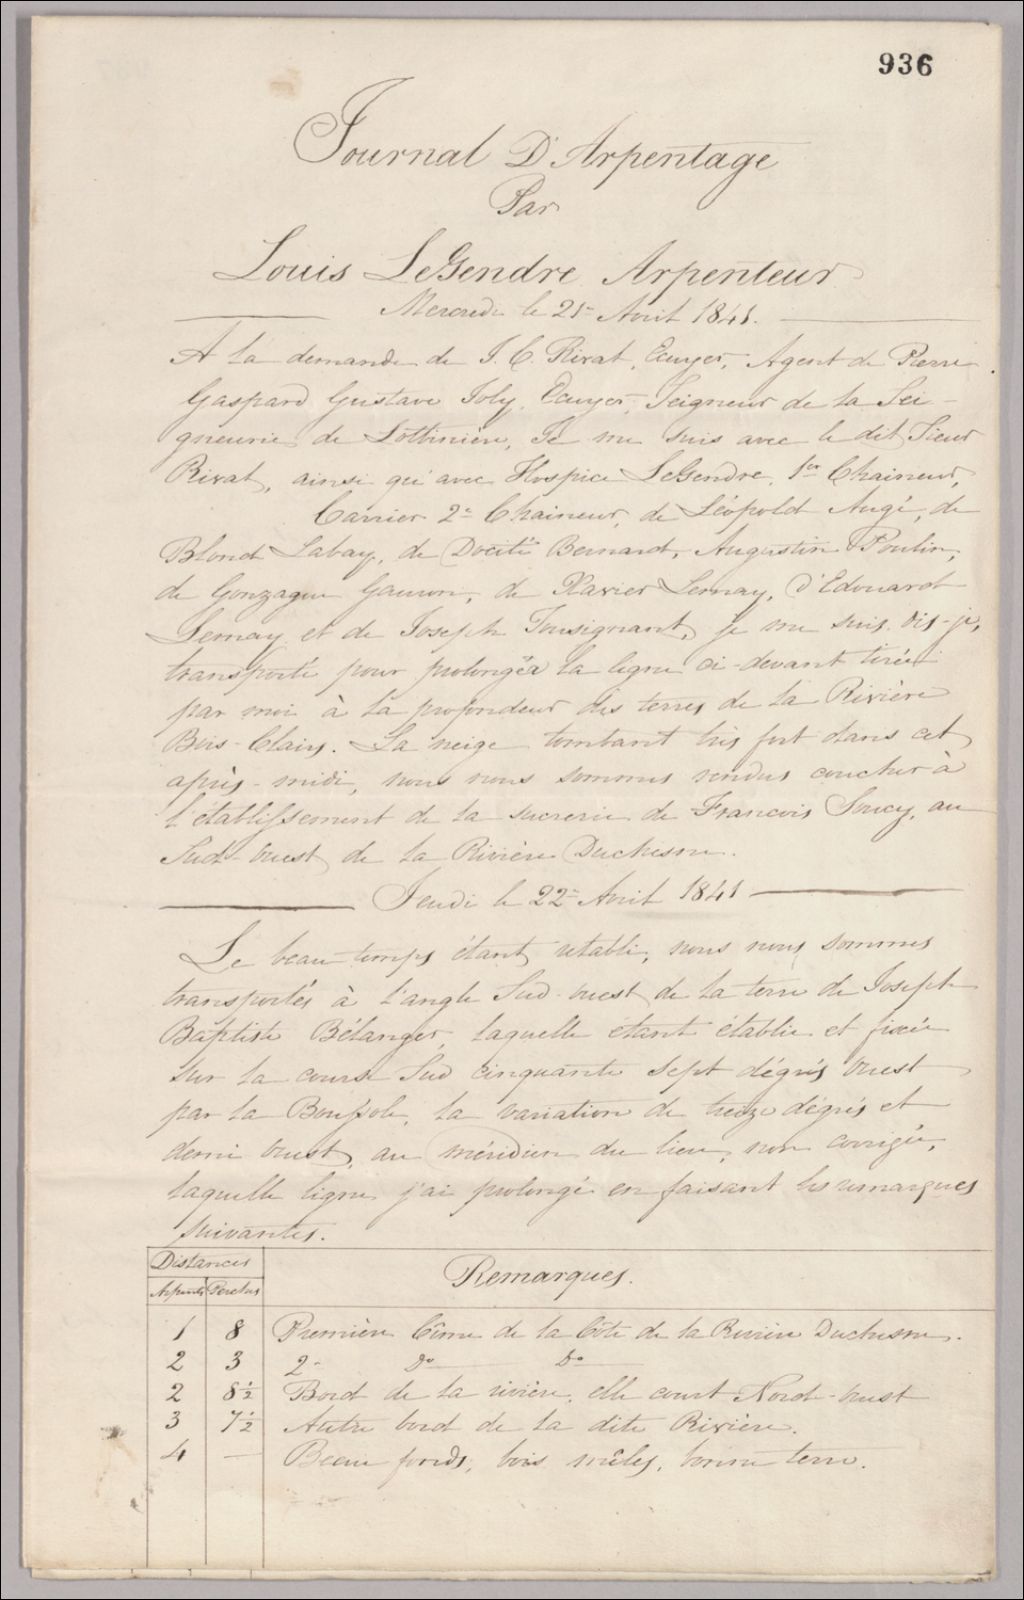 936
Journal D'Arpentage
Par
Louis LeGendre Arpenteur
Mercredi le 21e Avril 1841.
A la demande de J. C. Rivat, Ecuyer, Agent de Pierre
Gaspard Gustave Joly, Ecuyer, Seigneur de la Sei-
gneurie de Lotbinière, Je me suis avec le dit Sieur
Rivat, ainsi qu'avec Hospice LeGendre, 1er Chaineur,
Carrier 2e Chaineur, de Léopold Augé, de
Blond Labay, de Docité Bernard, Augustin Poulin,
de Gonzague Gauron, de Xavier Lemay, d'Edouard
Lemay et de Joseph Tousignant, je me suis, dis-je,
transporté pour prolonger la ligne ci-devant tirée
par moi à la profondeur des terres de la Rivière
Bois-Clair. La neige tombant très fort dans cet
après-midi, nous nous sommes rendus coucher à
l'établissement de la sucrerie de Francois Soucy, au
Sud-ouest de la Rivière Duchesne.
Jeudi le 22e Avril 1841
Le beau temps étant rétabli, nous nous sommes
transportés à l'angle Sud-ouest de la terre de Joseph
Baptiste Bélanger, laquelle étant établie et fixée
sur la course Sud cinquante sept dégrés Ouest
par la Boussole, la variation de treize dégrés et
demi Ouest, au méridien du lieu, non corrigée,
laquelle ligne j'ai prolongé en faisant les remarques
suivantes.
Distances
Remarques.
Arpents Perches
1 8 Première Cîme de la Côte de la Rivière Duchesne.
2 3 2e Do Do
2 8½ Bord de la rivière, elle court Nord-ouest
3 7½ Autre bord de la dite Rivière.
4 — Beau fonds, bois mêlés, bonne terre.